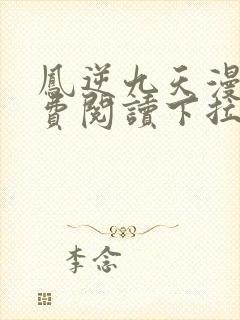 鳳逆九天漫
費閱讀下拉
李念